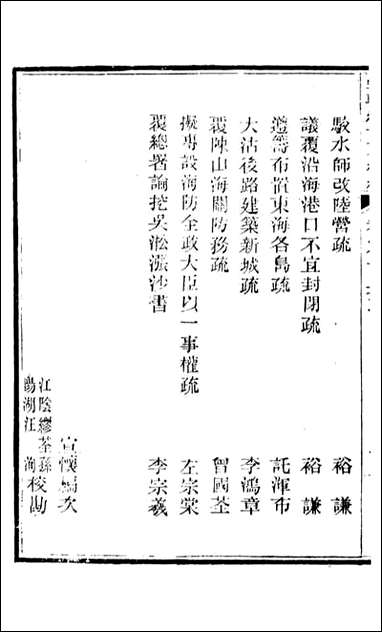 駁水師改陸營疏　裕謙
議覆沿海港口不宜封閉疏　裕謙
遵籌布置東海各島疏　託渾布
大沽後路建築新城疏　李鴻章
覆陳山海關防務疏　曾國荃
擬專設海防全政大臣以一事權疏　左宗棠
覆總署論挖吳淞漲沙書　李宗羲
宣懷編次
江陰繆荃孫
陽湖汪洵校勘